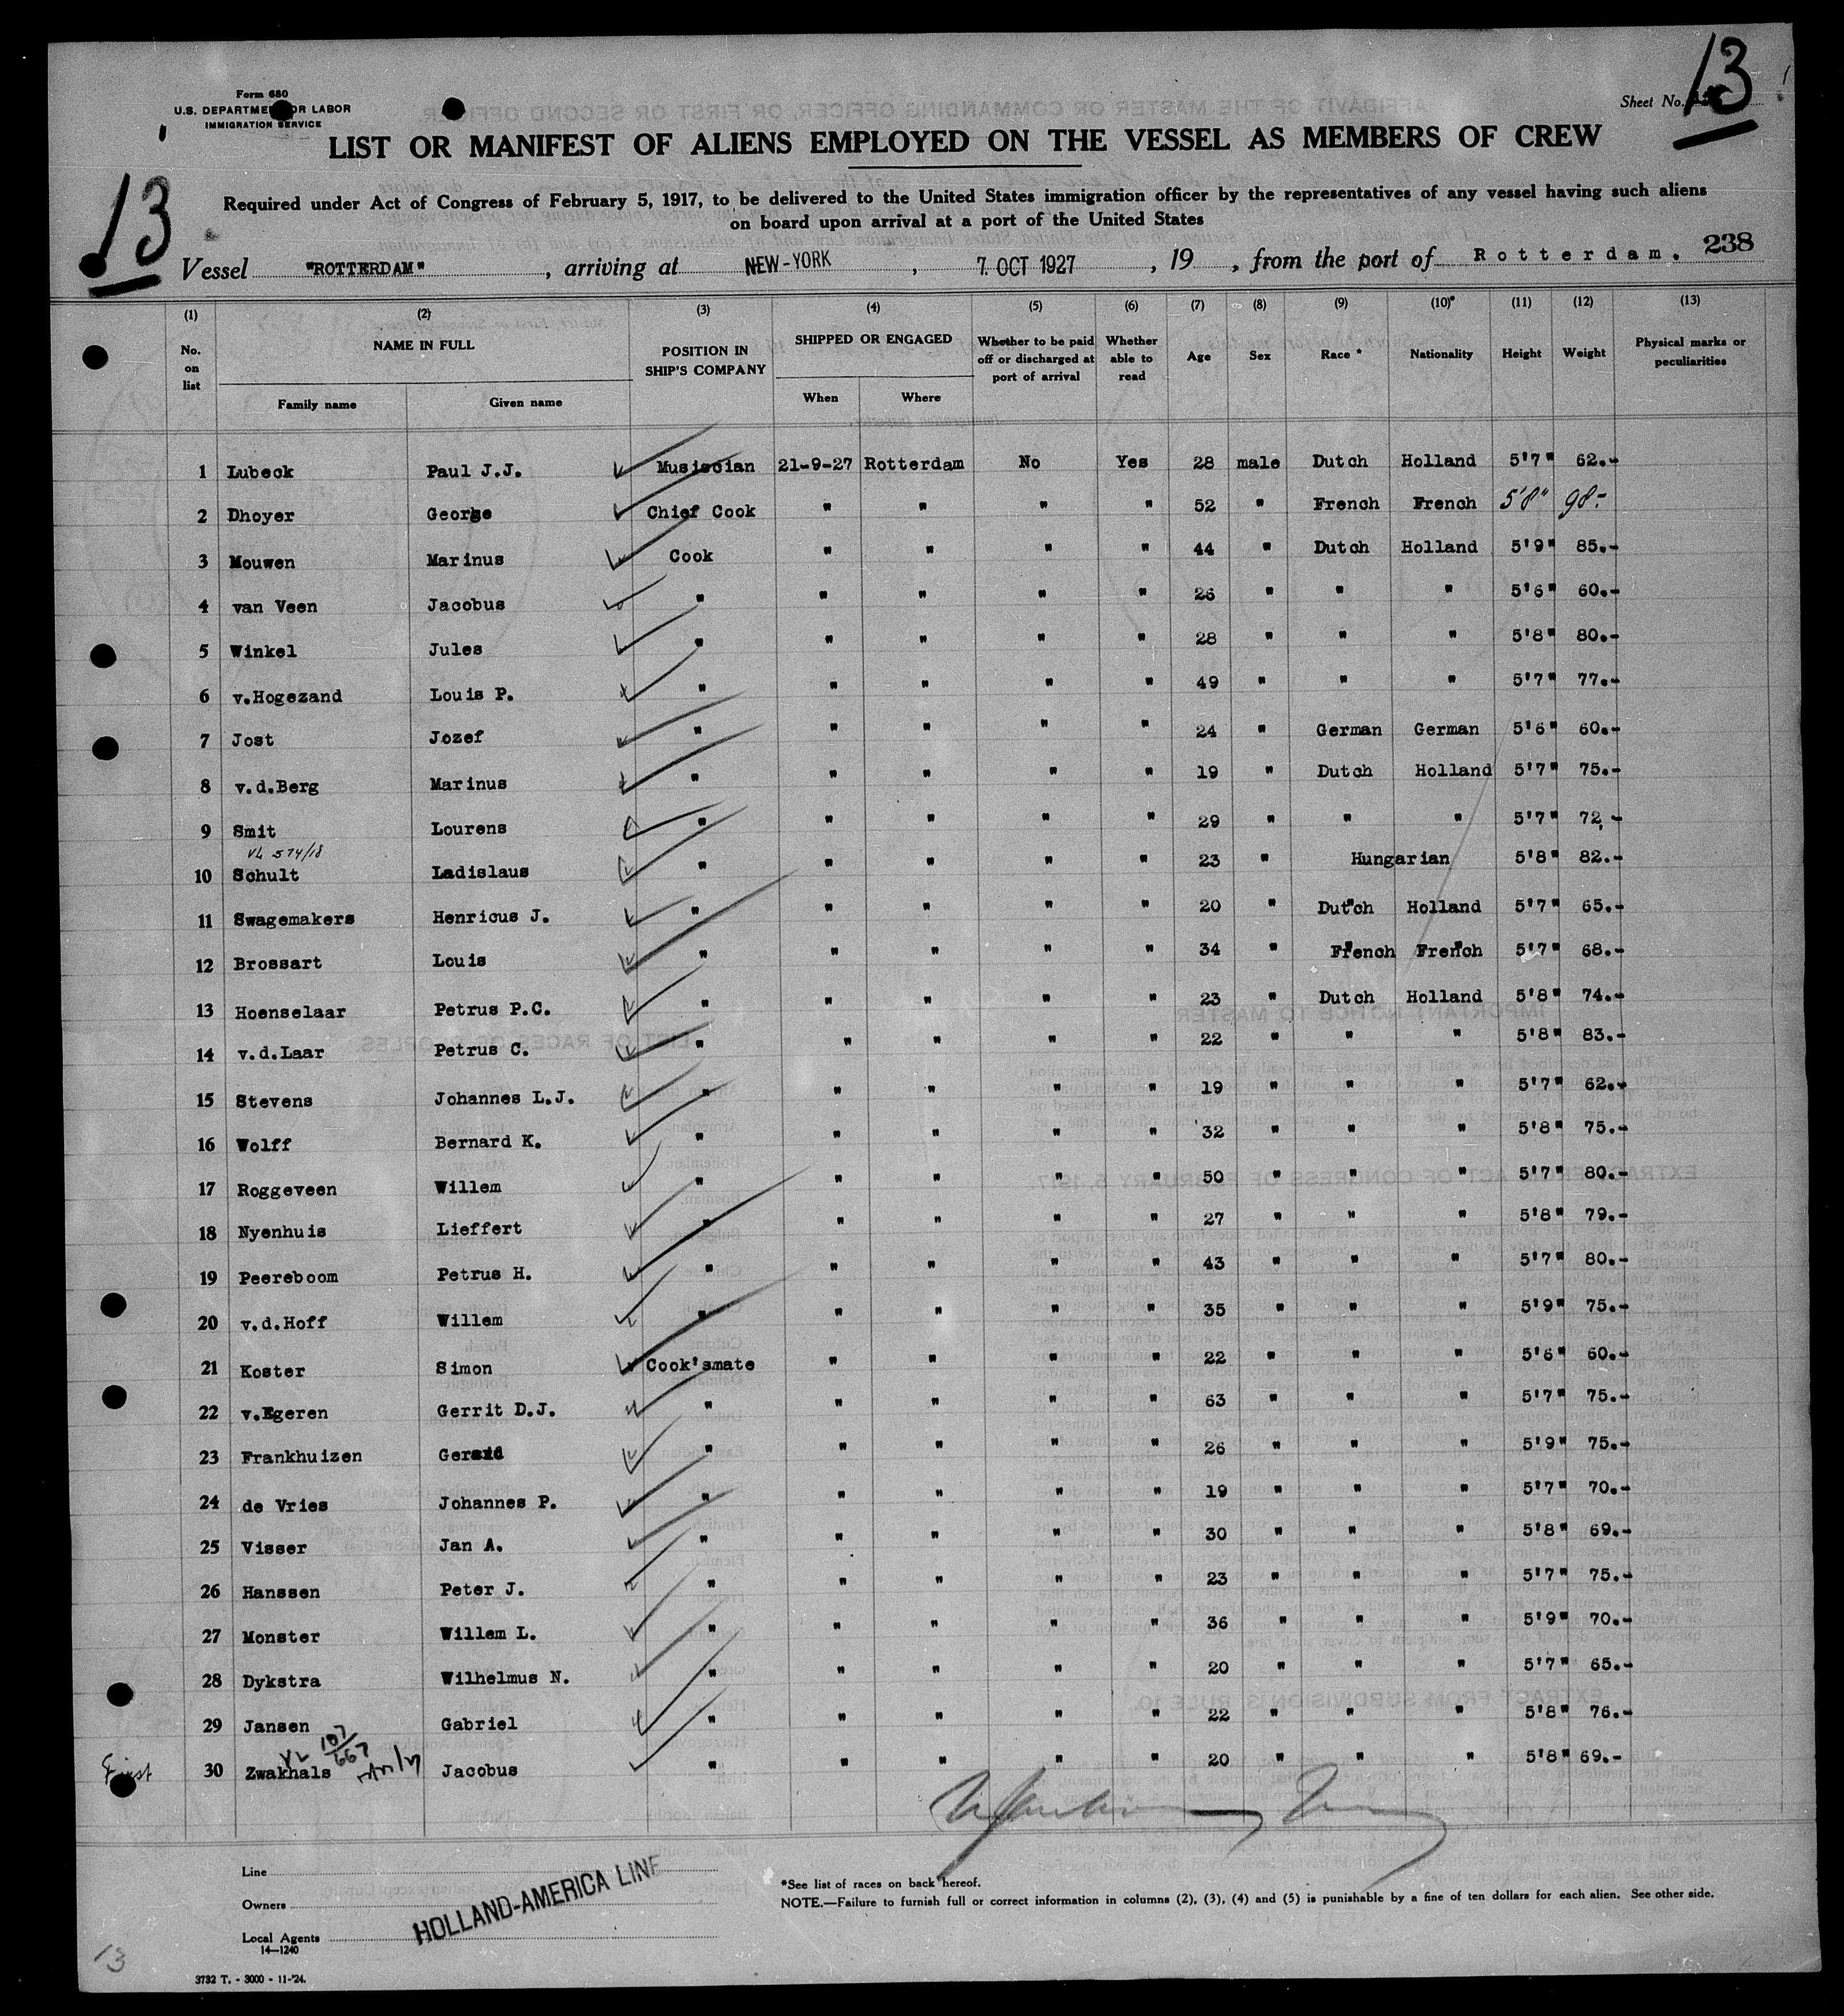 Form 680
U.S. DEPARTMENT OR LABOR
IMMIGRATION SERVICE
Sheet No.
13
LIST OR MANIFEST OF ALIENS EMPLOYED ON THE VESSEL AS MEMBERS OF CREW
13
Required under Act of Congress of February 5, 1917, to be delivered to the United States immigration officer by the representatives of any vessel having such aliens
on board upon arrival at a port of the United States
Vessel "ROTTERDAM" , arriving at NEW-YORK , 7. OCT 1927 , 19 , from the port of Rotterdam. 238
(1) (2) (3) (4) (5) (6) (7) (8) (9) (10)* (11) (12) (13)
No. on list NAME IN FULL Family name Given name POSITION IN SHIP'S COMPANY SHIPPED OR ENGAGED When Where Whether to be paid off or discharged at port of arrival Whether able to read Age Sex Race * Nationality Height Weight Physical marks or peculiarities
1 Lubeck Paul J.J. Musician 21-9-27 Rotterdam No Yes 28 male Dutch Holland 5'7" 62.-
2 Dhoyer George Chief Cook " " " " 52 " French French 5'8" 98-
3 Mouwen Marinus Cook " " " " 44 " Dutch Holland 5'9" 85.-
4 van Veen Jacobus " " " " " 26 " " " 5'6" 60.-
5 Winkel Jules " " " " " 28 " " " 5'8" 80.-
6 v.Hogezand Louis P. " " " " " 49 " " " 5'7" 77.-
7 Jost Jozef " " " " " 24 " German German 5'6" 60.-
8 v.d.Berg Marinus " " " " " 19 " Dutch Holland 5'7" 75.-
9 Smit Lourens " " " " " 29 " " " 5'7" 72,-
VL 574/18
10 Schult Ladislaus " " " " " 23 " Hungarian 5'8" 82.-
11 Swagemakers Henricus J. " " " " " 20 " Dutch Holland 5'7" 65.-
12 Brossart Louis " " " " " 34 " French French 5'7" 68.-
13 Hoenselaar Petrus P.C. " " " " " 23 " Dutch Holland 5'8" 74.-
14 v.d.Laar Petrus C. " " " " " 22 " " " 5'8" 83.-
15 Stevens Johannes L.J. " " " " " 19 " " " 5'7" 62.-
16 Wolff Bernard K. " " " " " 32 " " " 5'8" 75.-
17 Roggeveen Willem " " " " " 50 " " " 5'7" 80.-
18 Nyenhuis Lieffert " " " " " 27 " " " 5'8" 79.-
19 Peereboom Petrus H. " " " " " 43 " " " 5'7" 80.-
20 v.d.Hoff Willem " " " " " 35 " " " 5'9" 75.-
21 Koster Simon Cook'smate " " " " 22 " " " 5'6" 60.-
22 v.Egeren Gerrit D.J. " " " " " 63 " " " 5'7" 75.-
23 Frankhuizen " " " " " 26 " " " 5'9" 75.-
24 de Vries Johannes P. " " " " " 19 " " " 5'7" 70.-
25 Visser Jan A. " " " " " 30 " " " 5'8" 69.-
26 Hanssen Peter J. " " " " " 23 " " " 5'7" 75.-
27 Monster Willem L. " " " " " 36 " " " 5'9" 70.-
28 Dykstra Wilhelmus N. " " " " " 20 " " " 5'7" 65.-
29 Jansen Gabriel " " " " " 22 " " " 5'8" 76.-
VL 107/667
First 30 Zwakhals Jacobus " " " " " 20 " " " 5'8" 69.-
Line
Owners
Local Agents
HOLLAND-AMERICA LINE
14—1240
*See list of races on back hereof.
NOTE.—Failure to furnish full or correct information in columns (2), (3), (4) and (5) is punishable by a fine of ten dollars for each alien. See other side.
13
3732 T. - 3000 - 11-'24.